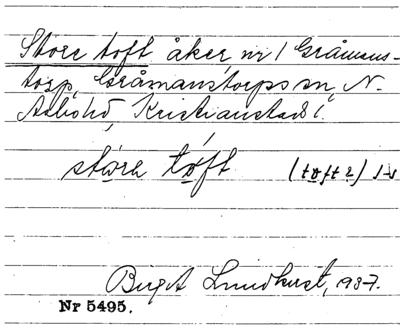 Store toft åker, nr 1 Gråmans-
torp, Gråmanstorps sn, N.
Åsbohd, Kristianstads l.
stóra tóft (tofta) 1-s
Birgit Lundkvist, 1937.
Nr 5495.